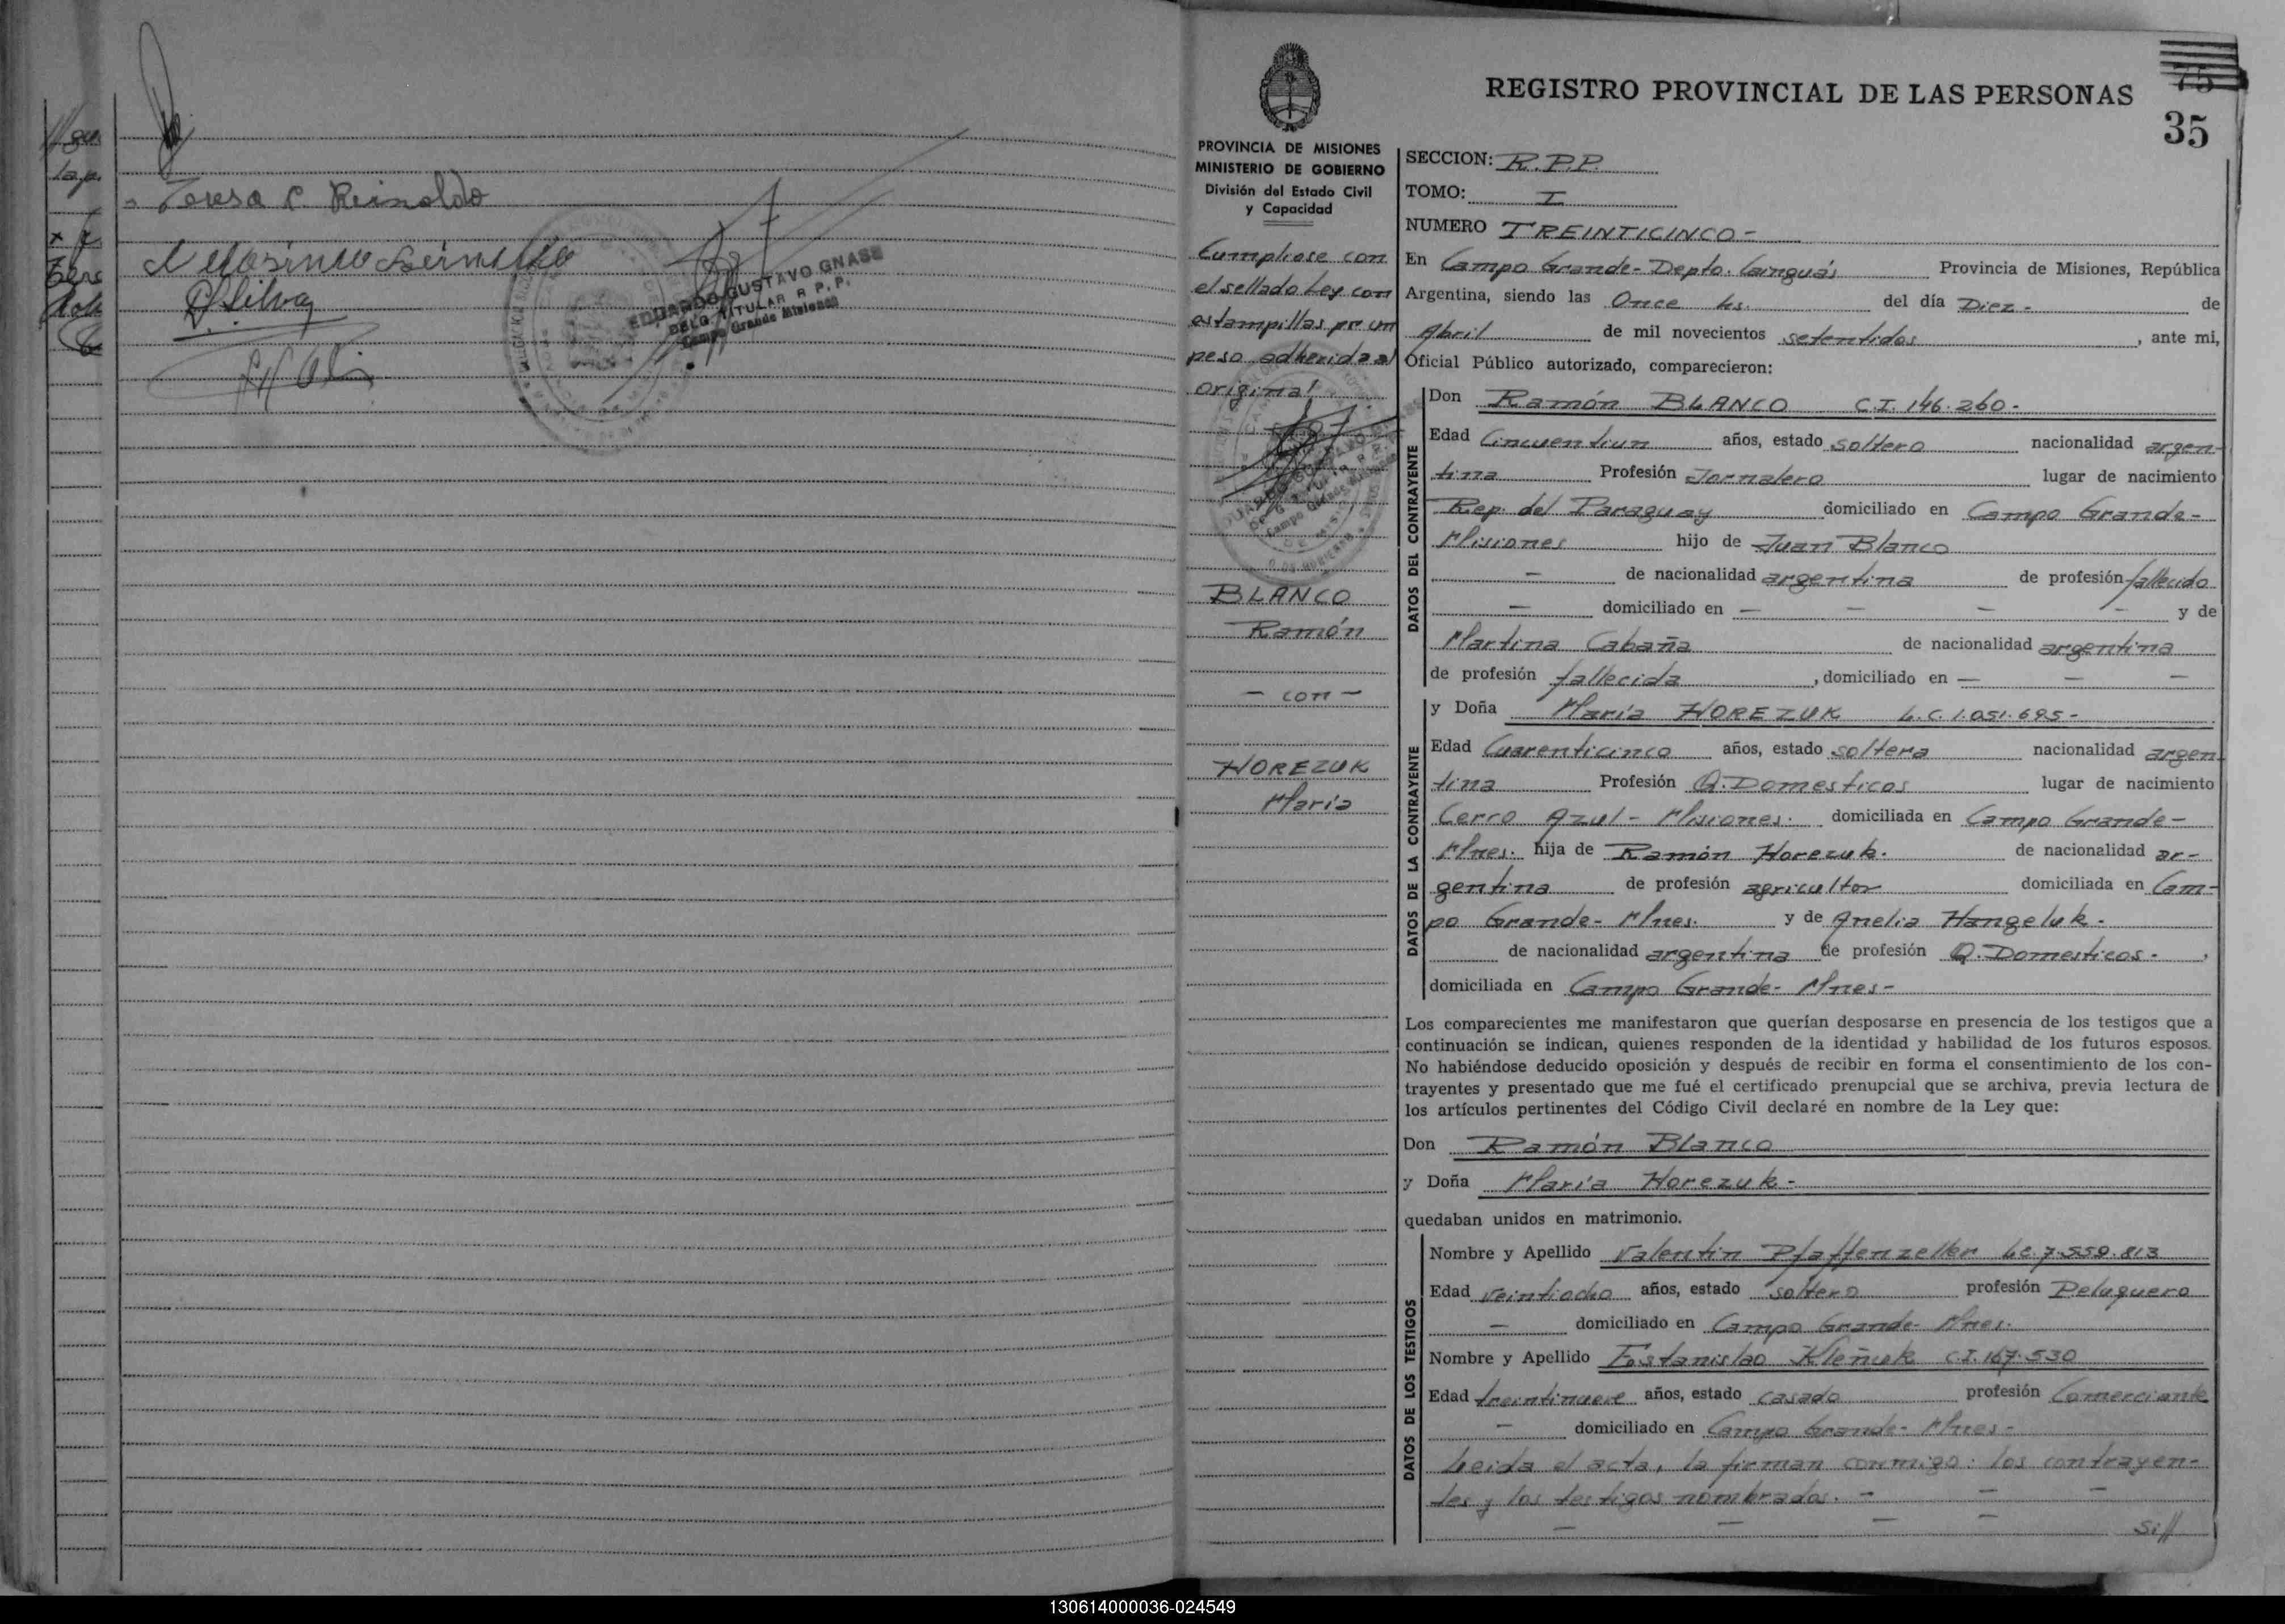 Teresa C. Reinoldo
D. Silva
EDUARDO GUSTAVO GNASS
DELG. TITULAR R.P.P.
Campo Grande Misiones
75
35
REGISTRO PROVINCIAL DE LAS PERSONAS
PROVINCIA DE MISIONES
MINISTERIO DE GOBIERNO
División del Estado Civil
y Capacidad
Cumpliose con
el sellado Ley con
estampillas pr un
peso adherida al
original
BLANCO
Ramón
- con -
HOREZUK
María
SECCION: R.P.P.
TOMO: I
NUMERO TREINTICINCO -
En Campo Grande - Depto. Cainguás Provincia de Misiones, República
Argentina, siendo las Once hs. del día Diez - de
Abril de mil novecientos setentidos, ante mi,
Oficial Público autorizado, comparecieron:
DATOS DEL CONTRAYENTE
Don Ramón BLANCO C.I. 146.260 -
Edad Cincuentiun años, estado soltero nacionalidad argen-
tina Profesión Jornalero lugar de nacimiento
Rep. del Paraguay domiciliado en Campo Grande -
Misiones hijo de Juan Blanco
- de nacionalidad argentina de profesión fallecido
- domiciliado en - - - - y de
Martina Cabaña de nacionalidad argentina
de profesión fallecida, domiciliado en - - -
DATOS DE LA CONTRAYENTE
y Doña María HOREZUK L.C. 1.051.695 -
Edad Cuarenticinco años, estado soltera nacionalidad argen
tina Profesión Q. Domesticos lugar de nacimiento
Cerro Azul - Misiones. domiciliada en Campo Grande -
Mnes. hija de Ramón Horezuk. de nacionalidad ar-
gentina de profesión agricultor domiciliada en Cam-
po Grande - Mnes. y de Anelia Hangeluk -
de nacionalidad argentina de profesión Q. Domesticos - ,
domiciliada en Campo Grande - Mnes -
Los comparecientes me manifestaron que querían desposarse en presencia de los testigos que a
continuación se indican, quienes responden de la identidad y habilidad de los futuros esposos.
No habiéndose deducido oposición y después de recibir en forma el consentimiento de los con-
trayentes y presentado que me fué el certificado prenupcial que se archiva, previa lectura de
los artículos pertinentes del Código Civil declaré en nombre de la Ley que:
Don Ramón Blanco
y Doña María Horezuk -
quedaban unidos en matrimonio.
DATOS DE LOS TESTIGOS
Nombre y Apellido Valentin Pfaffenzeller L.E. 7.559.813
Edad veintiocho años, estado soltero profesión Peluquero
- domiciliado en Campo Grande - Mnes.
Nombre y Apellido Estanislao Kleñuk C.I. 167.530
Edad treintinueve años, estado casado profesión Comerciante
- domiciliado en Campo Grande - Mnes -
Leida el acta, la firman conmigo: los contrayen-
tes y los testigos nombrados. - - -
- - - - Si//
130614000036-024549